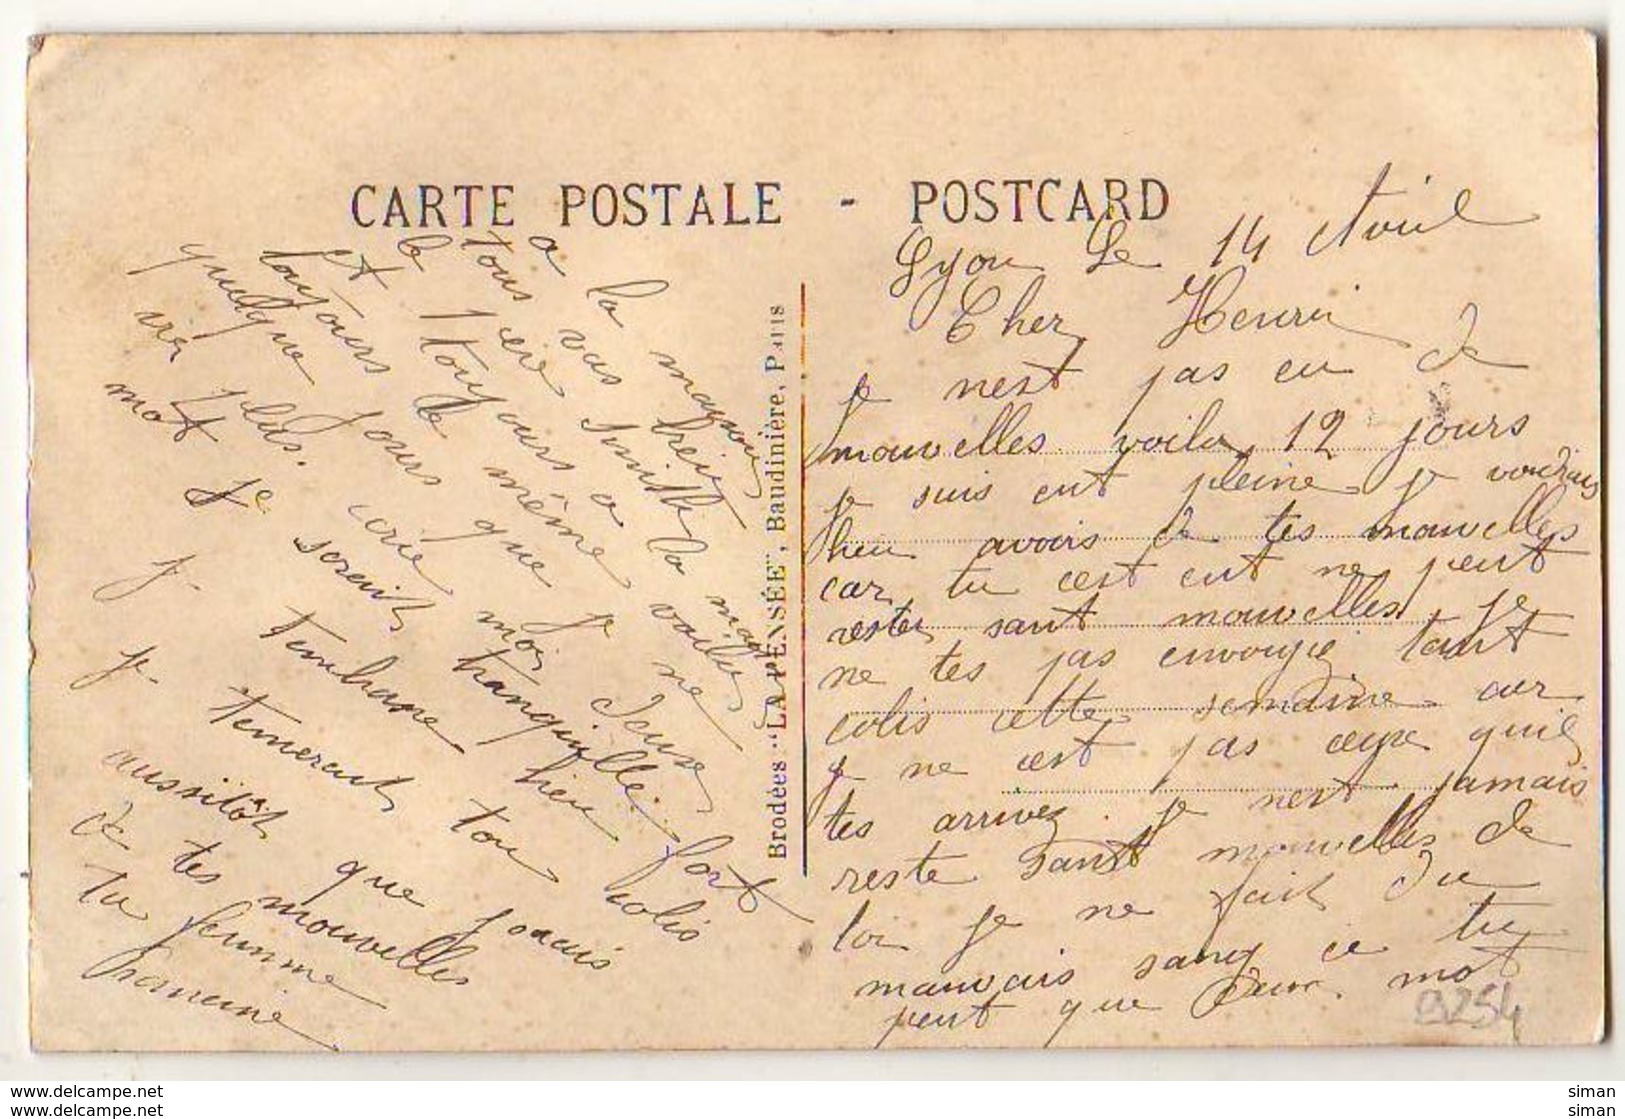 CARTE POSTALE - POSTCARD
Lyon Le 14 Avril
Cher Henri
je nest pas eu de
nouvelles voila 12 jours
je suis ent pleine je voudrais
bien avoir de tes nouvelles
car tu cest ent ne peut
rester sant nouvelles je
ne tes pas envoyie tant
colis cette semaine car
je ne cest pas ceque quil
tes arrivez je nest jamais
reste sant nouvelles de
toi je ne fait du
mauvais sang ce tu
peut que deux mot
a la
tous vas bein
le père Smith la
et toujours a
toujours le même voilu
quelque jours que je ne
vie plus. ecrie moi deux
mot Je serait tranquille
je tembrasse bien fort
je temerait ton colis
aussitôt que jorais
de tes nouvelles
tu femme
Brodées "LA PENSÉE", Baudinière, PARIS
B254
siman
siman